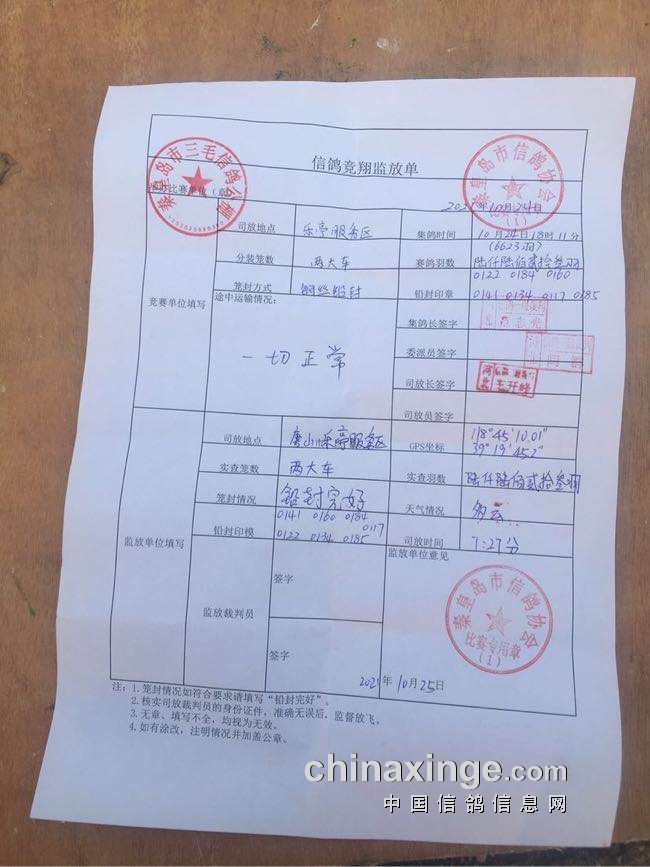 信鸽竞翔监放单
秦皇岛市三毛信鸽公棚
秦皇岛市信鸽协会
(1)
比赛单位（章
2021年10月24日
竞赛单位填写
司放地点 乐亭服务区 集鸽时间 10月24日18时11分
(6623羽)
分装笼数 两大车 赛鸽羽数 陆仟陆佰贰拾叁羽
笼封方式 钢丝铅封 铅封印章 0122 0184 0160
0141 0134 0117 0185
途中运输情况：
一切正常
集鸽长签字
委派员签字
司放长签字
司放员签字
监放单位填写
司放地点 唐山乐亭服务区 GPS坐标 118°45'10.01"
39°19'45.2"
实查笼数 两大车 实查羽数 陆仟陆佰贰拾叁羽
笼封情况 铅封完好 天气情况 多云
铅封印模 0141 0160 0184
0117
0122 0134 0185
司放时间 7:27分
监放裁判员
签字
签字
监放单位意见
秦皇岛市信鸽协会
比赛专用章
(1)
2021年10月25日
注：1.笼封情况如符合要求请填写“铅封完好”。
2.核实司放裁判员的身份证件，准确无误后，监督放飞。
3.无章、填写不全，均视为无效。
4.如有涂改，注明情况并加盖公章。
chinaxinge.com
中国信鸽信息网